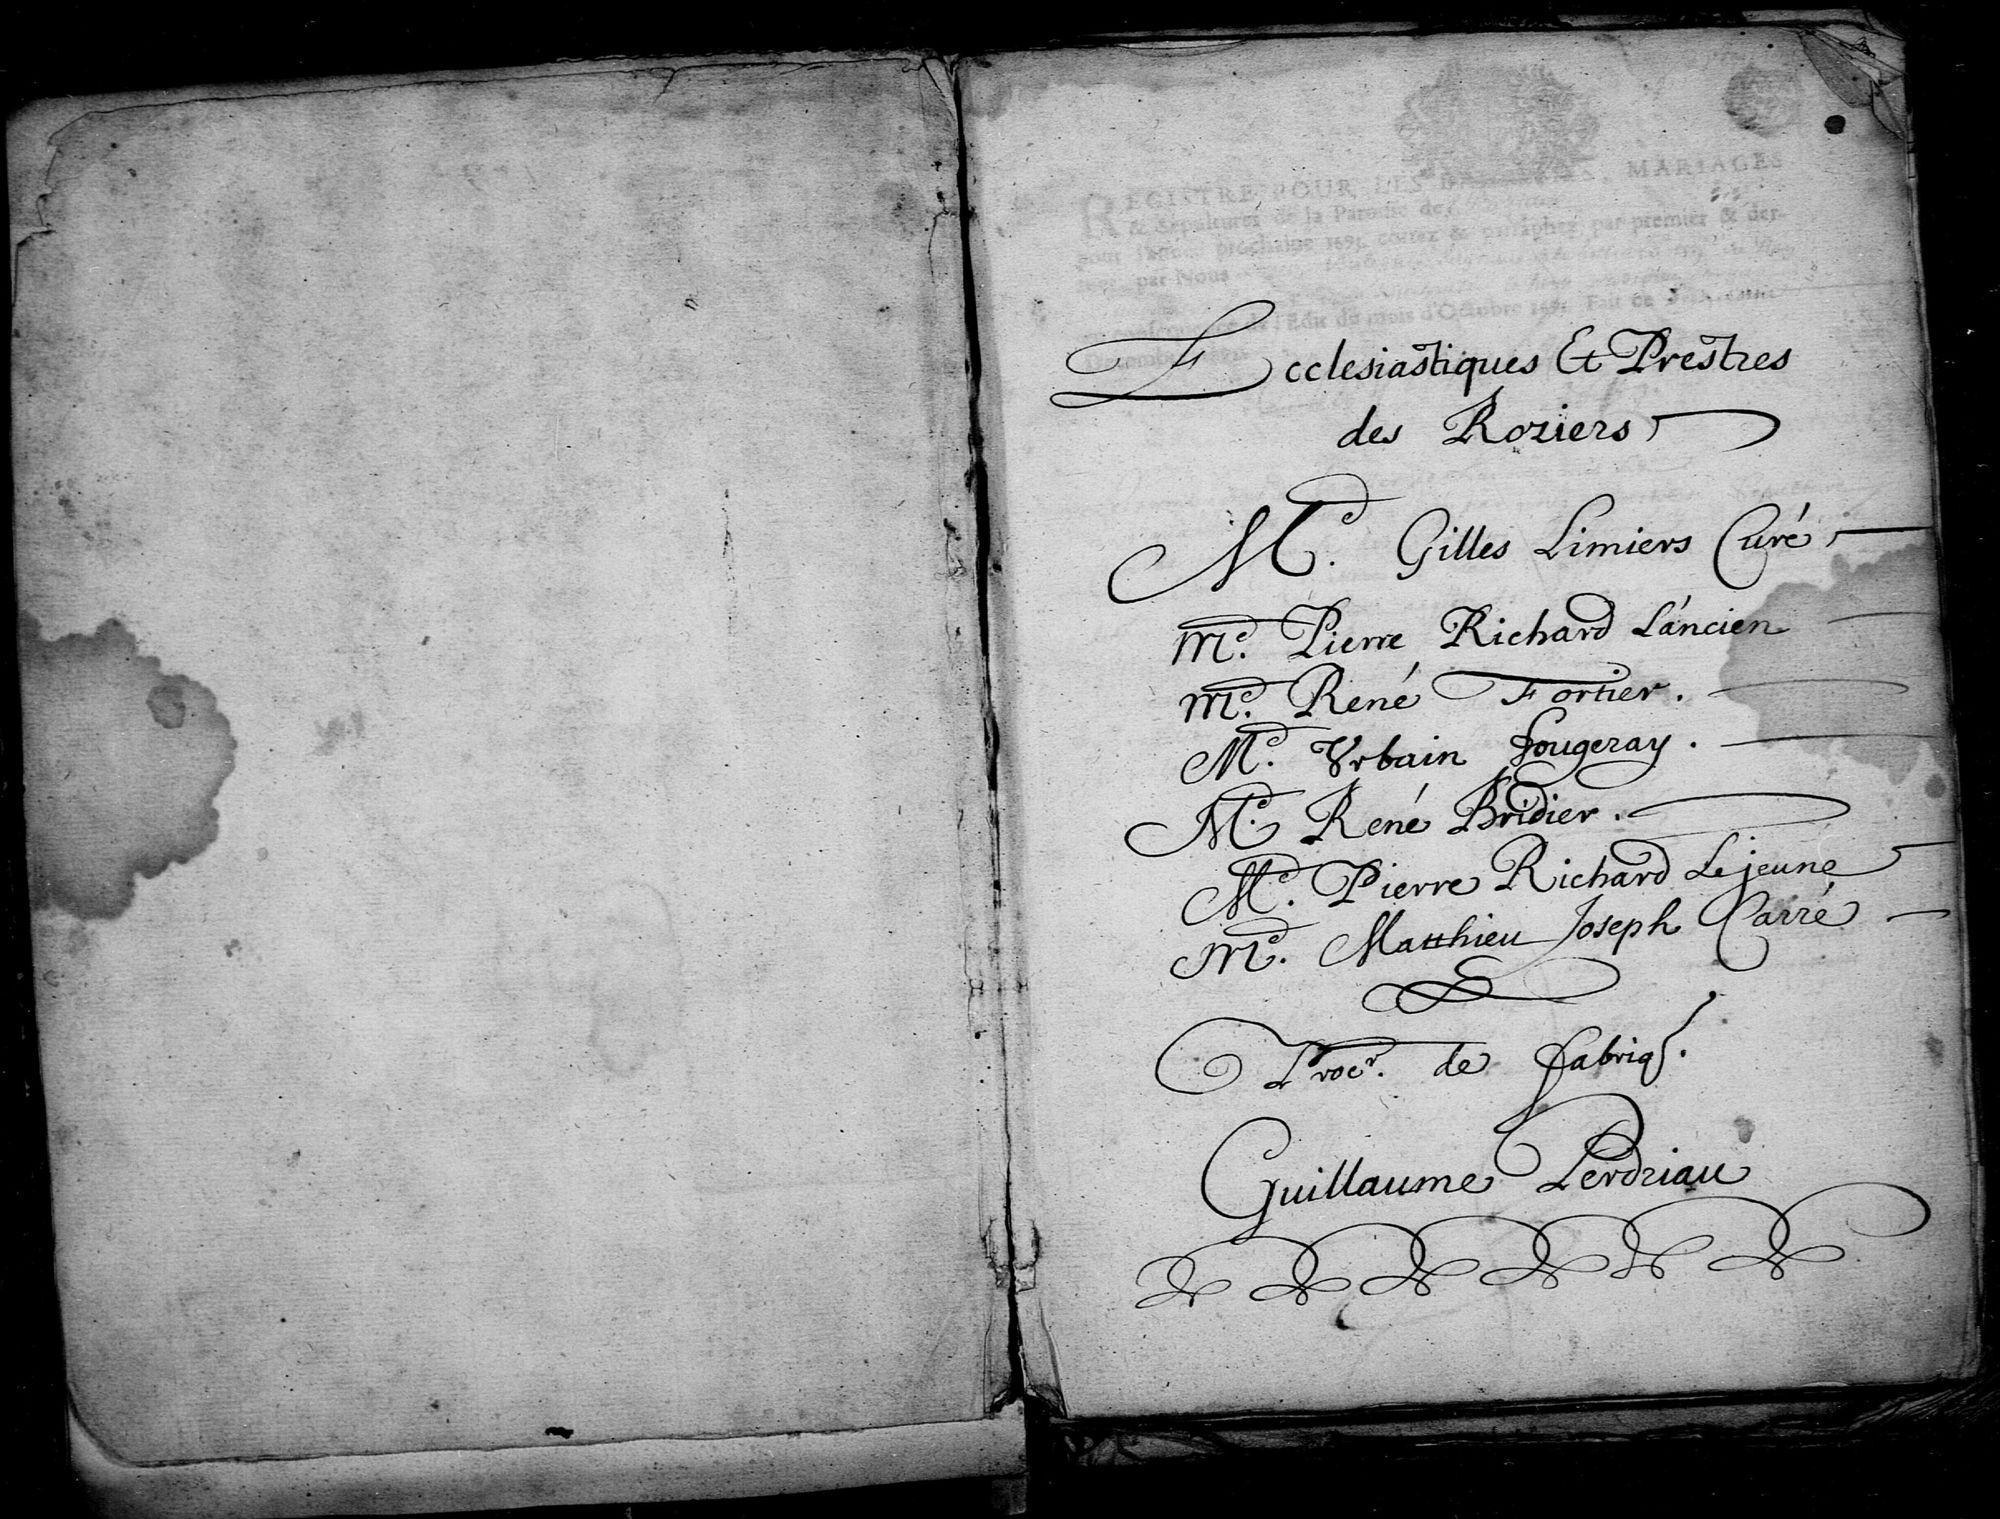 REGISTRE POUR LES MARIAGES
& Sepultures de la Paroisse de
pour l'année prochaine 1695. cottez & paraphez par premier & der-
par Nous
de l'Edit du mois d'Octobre 1691. Fait ce
Ecclesiastiques Et Prestres
des Roziers
Me. Gilles Limiers Curé
Me. Pierre Richard L'áncien
Me. René Fortier.
Me. Vrbain fougeray.
Me. René Bridier.
Me. Pierre Richard Lejeune
Me. Matthieu Joseph Carré
Procr. de fabriq.
Guillaume Perdriau